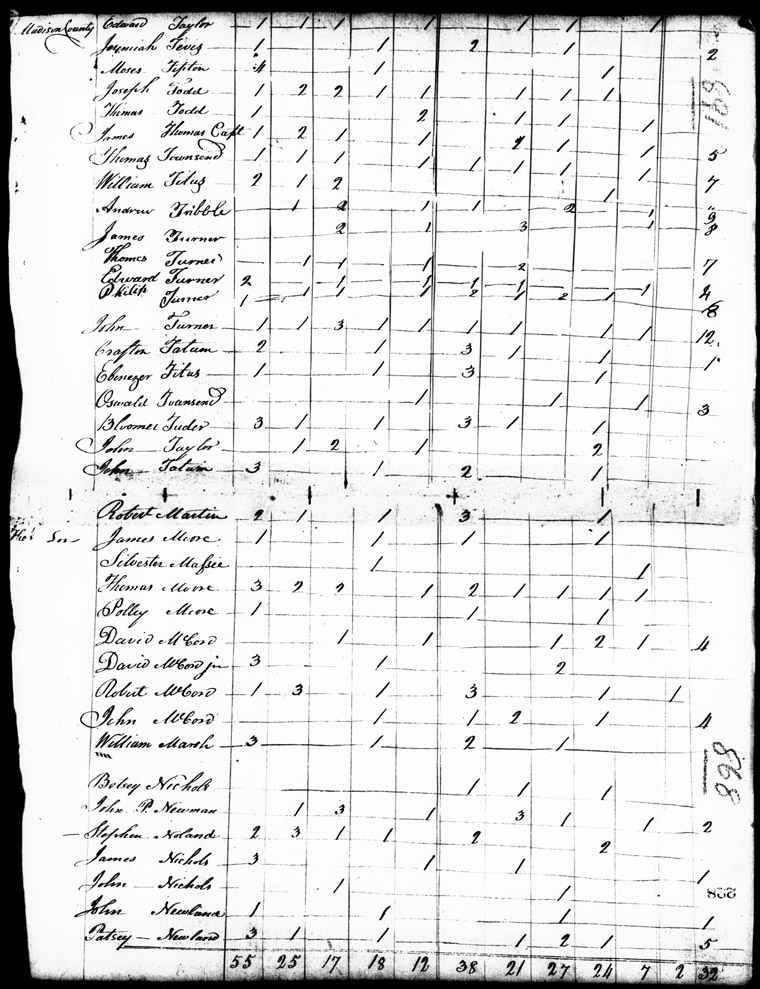 Madison County Edward Taylor 1 1 1 1 1 1 1
Jeremiah Tevis 1 1 2 1 2
Moses Tipton 4 1 1
Joseph Todd 1 2 2 1 1 1 1 1
Thomas Todd 1 2 1 1
James Thomas Capt 1 2 1 1 2 1 1
Thomas Townsend 1 1 1 1 1 1 1 1 5
William Titus 2 1 2 1 7
Andrew Tribble 1 2 1 1 2 1 9
James Turner 2 1 3 1 8
Thomas Turner 1 1 1 2 7
Edward Turner 2 1 1 1 1 1 4
Philip Turner 1 1 1 1 2 1 2 1 8
John Turner 1 1 3 1 1 1 1 1 1 12
Crafton Tatum 2 1 3 1 1 1
Ebenezer Titus 1 1 3 1
Oswald Townsend 1 1 1 3
Tuder 3 1 1 3 1 1
John Taylor 1 2 1 2
John Tatum 3 1 2 1
Robert Martin 2 1 1 3 1
James Moore 1 1 1 1
Silvester Massie 1 1
Thomas Moore 3 2 2 1 2 1 1 1 1
Polley Moore 1 1 1
David McCord 1 1 1 2 1 4
David McCord jn 3 1 2
Robert McCord 1 3 1 3 1 1
John McCord 1 1 2 1 4
William Marsh 3 1 2 1
Betsey Nichols 1 1 1
John P. Newman 1 3 1 3 1 1 2
Stephen Noland 2 3 1 1 2 2
James Nichols 3 1 1 1
John Nichols 1 1
John Newland 1 1 1 1
Patsey Newland 3 1 1 1 2 1 5
55 25 17 18 12 38 21 27 24 7 2 32
168
898
228